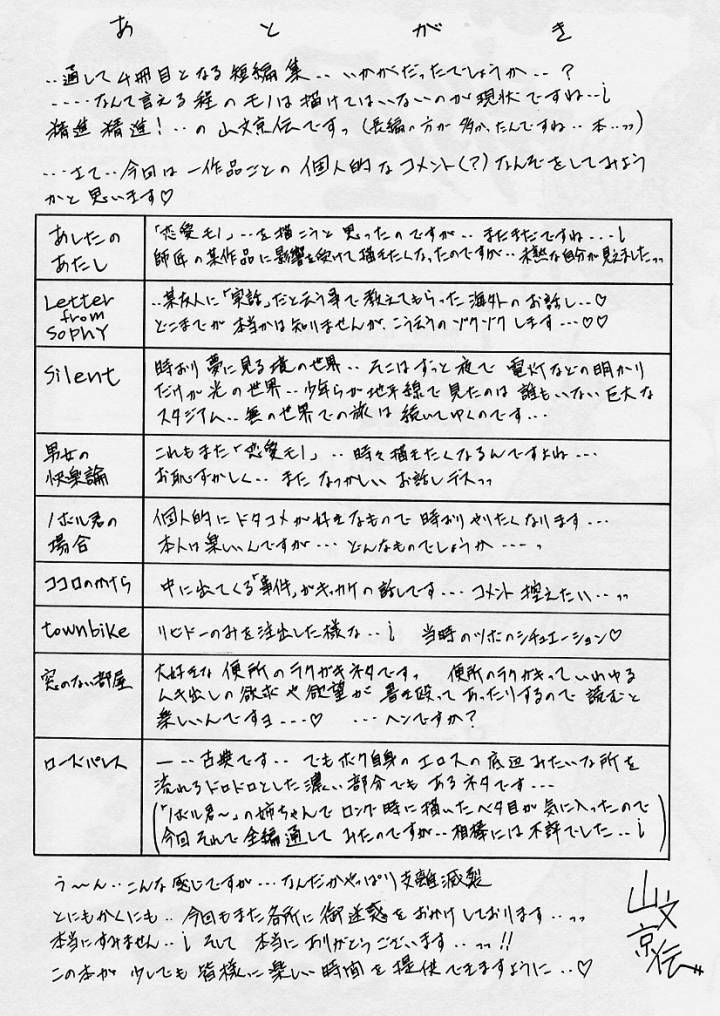 あとがき
‥通して4冊目となる短編集‥いかがだったでしょうか‥?
‥‥なんて言える程のモノは描けてはいないのが現状ですね‥¡
精進精進!‥の山文京伝ですっ(長編の方が多かったんですね‥本‥ッッ)
‥さて‥今回は一作品ごとの個人的なコメント(?)なんぞをしてみよう
かと思います♡
あしたの
あたし
「恋愛モノ」‥を描こうと思ったのですが‥まだまだですね‥‥¡
師匠の某作品に影響を受けて描きたくなったのですが‥未熟な自分が見えましたッッ
Letter
from
SOPHY
‥某友人に「実話」だと云う事で教えてもらった海外のお話し‥♡
どこまでが本当かは知りませんが、こう云うのゾクゾクします‥‥♡♡
Silent
時おり夢に見る境の世界‥そこはずっと夜で 電灯などの明かり
だけが光の世界‥少年らが地平線で見たのは誰もいない巨大な
スタジアム‥無の世界での旅は続いてゆくのです‥‥
男女の
快楽論
これもまた「恋愛モノ」‥時々描きたくなるんですよね‥‥
お恥ずかしく‥また なつかしいお話しデスッッ
ノボル君の
場合
個人的にドタコメが好きなもので時おりやりたくなります‥‥
本人は楽しいんですが‥‥どんなものでしょうか‥‥っ
ココロのかけら
中に出てくる「事件」がキッカケの話しです‥‥コメント控えたい‥ッッ
townbike
リビドーのみを注出した様な‥¡ 当時のツボのシチュエーション♡
窓のない部屋
大好きな便所のラクガキネタですっ 便所のラクガキっていわゆる
ムキ出しの欲求や欲望が書き殴ってあったりするので読むと
楽しいんですヨ‥‥♡ ‥‥ヘンですか?
ローズパレス
―‥古典です‥でもボク自身のエロスの底辺みたいな所を
流れるドロドロとした濃い部分でもあるネタです‥‥
(「ノボル君〜」の姉ちゃんでロング時に描いたベタ目が気に入ったので
今回それで全編通してみたのですが‥相棒には不評でした‥¡)
う〜ん‥こんな感じですが‥‥なんだかやっぱり支離滅裂
とにもかくにも‥今回もまた各所に御迷惑をおかけしております‥ッッ
本当にすみません‥¡ そして 本当にありがとうございます‥ッッ!!
この本が少しでも皆様に楽しい時間を提供できますように‥♡
山文
京伝